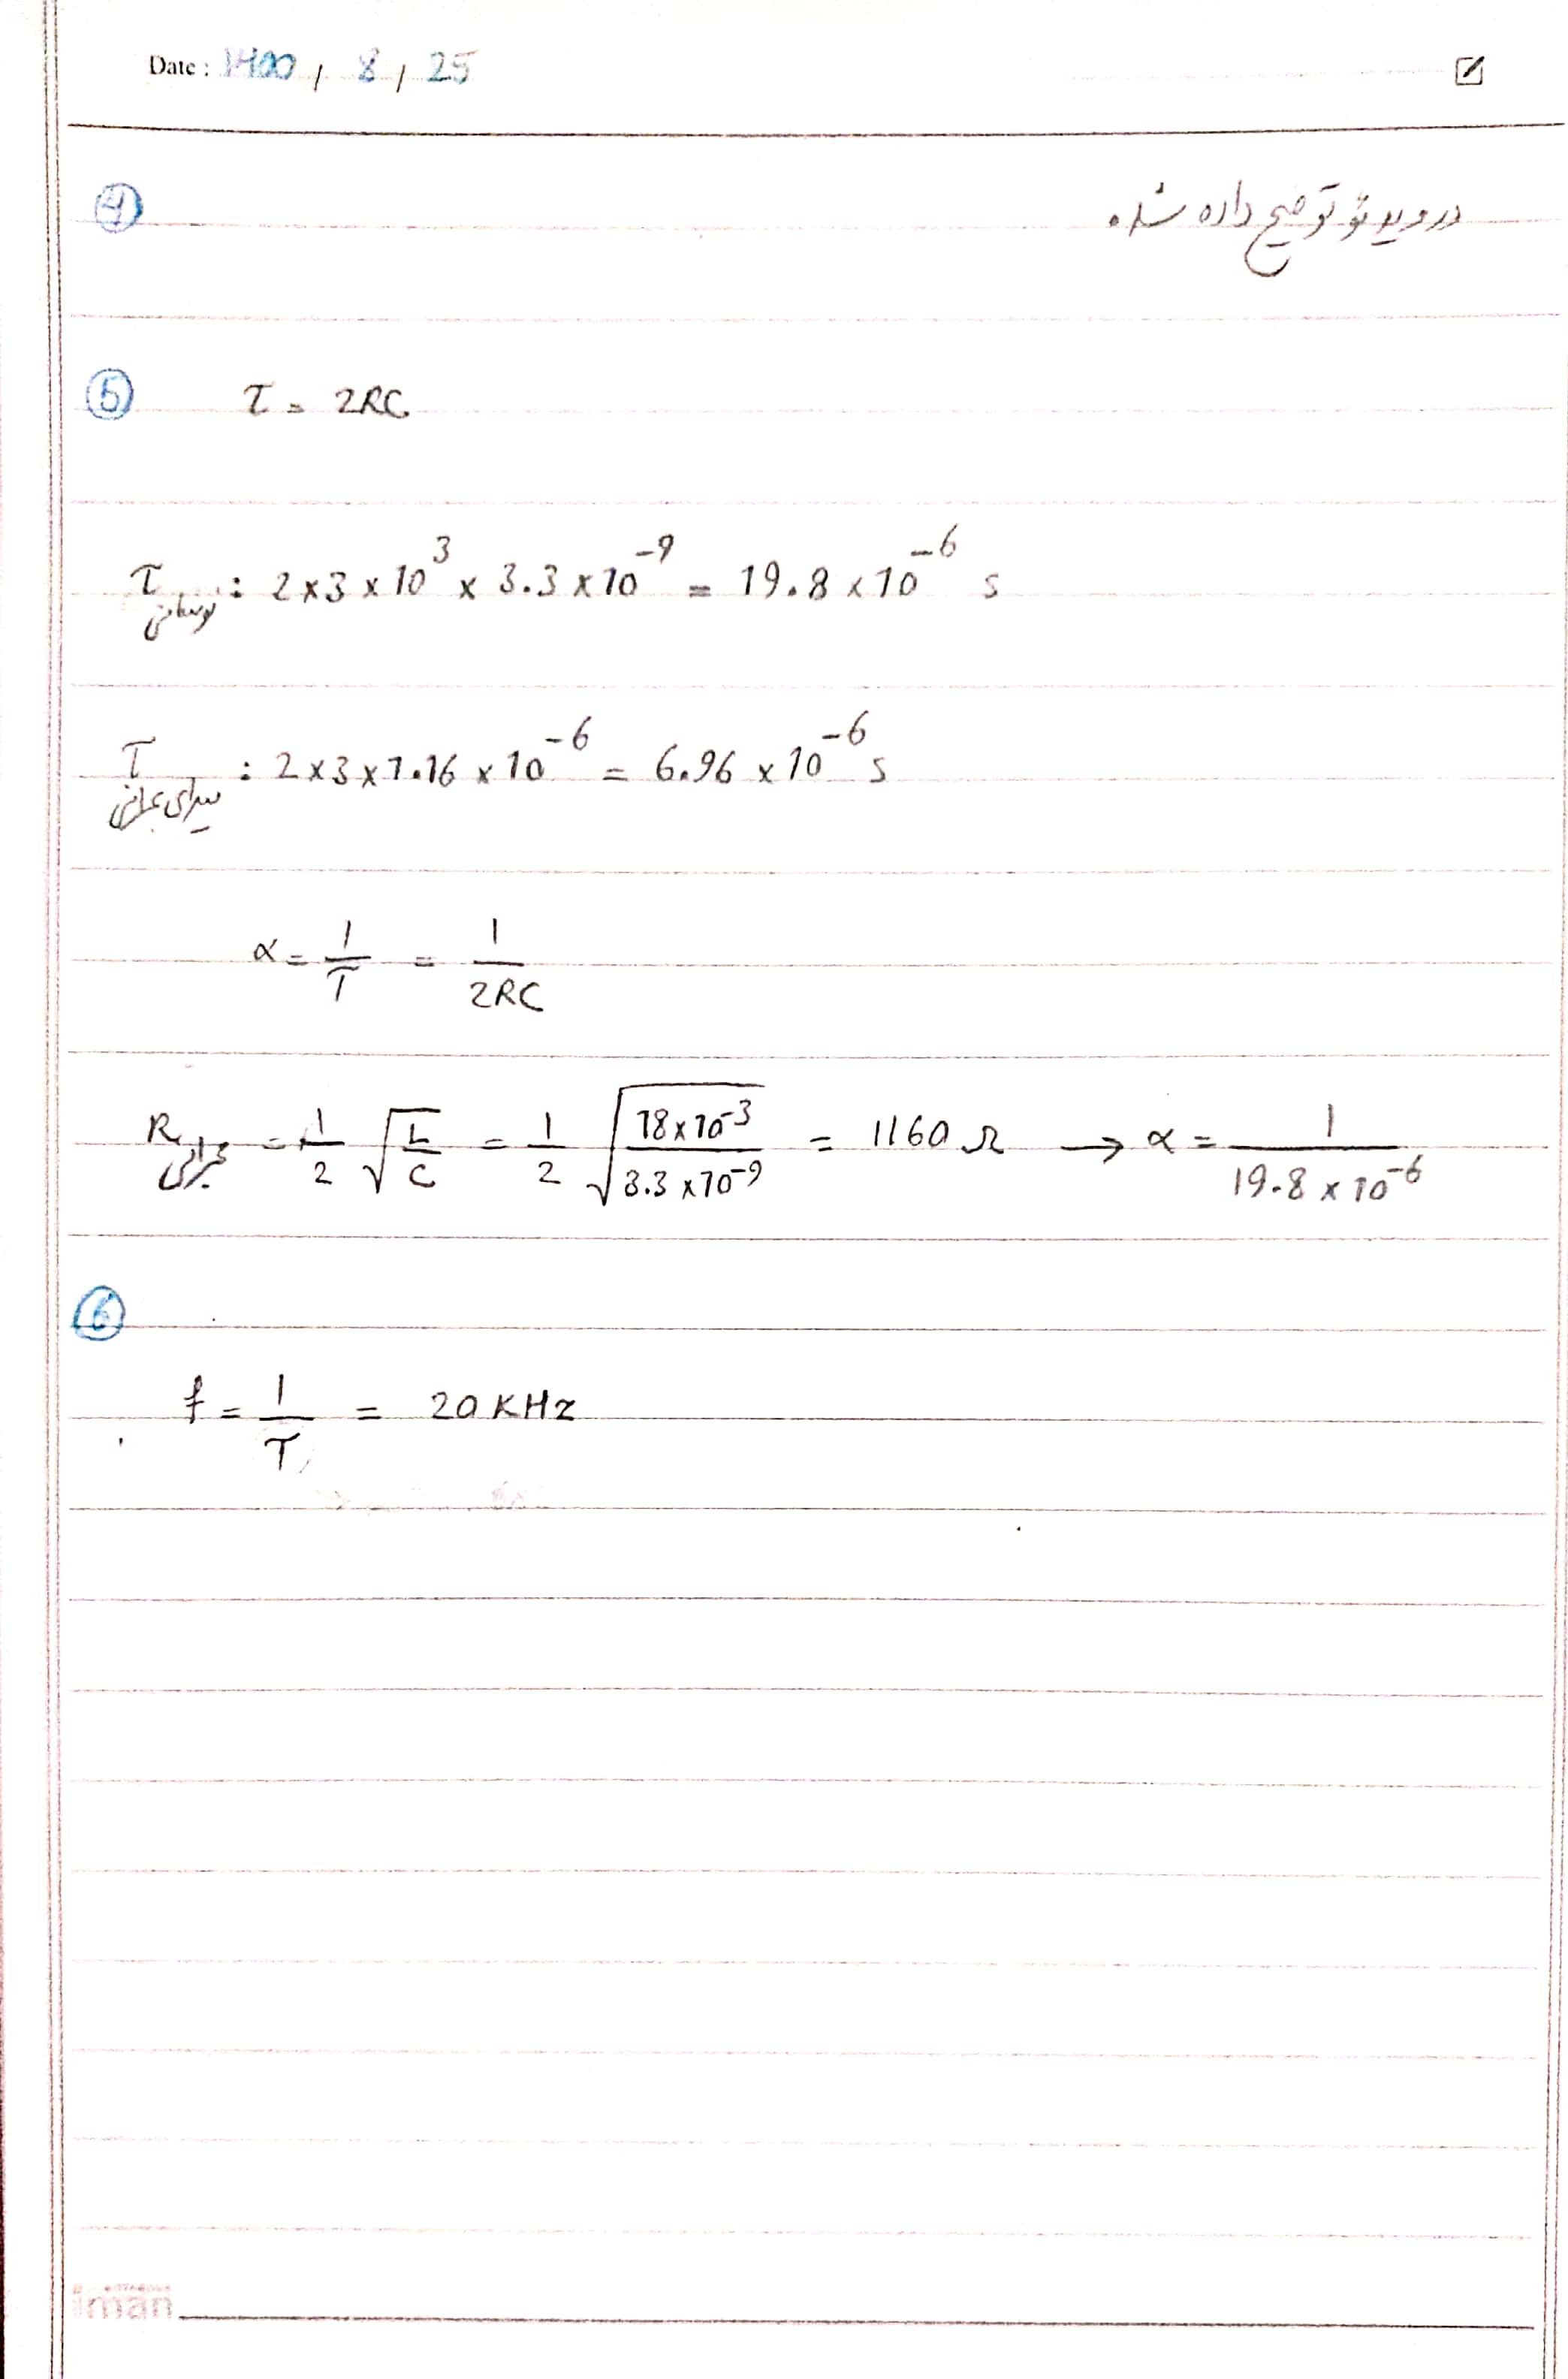 Date : 1400 / 8 / 25
④ در ویدئو توضیح داده شده
⑤ τ = 2RC
τ نوسانی : 2 × 3 × 10³ × 3.3 × 10⁻⁹ = 19.8 × 10⁻⁶ s
τ میرای بحرانی : 2 × 3 × 1.16 × 10⁻⁶ = 6.96 × 10⁻⁶ s
α = 1/τ = 1/2RC
R بحرانی = 1/2 √(L/C) = 1/2 √(18 × 10⁻³ / 3.3 × 10⁻⁹) = 1160 Ω → α = 1 / 19.8 × 10⁻⁶
⑥
f = 1/T = 20 KHz
iman